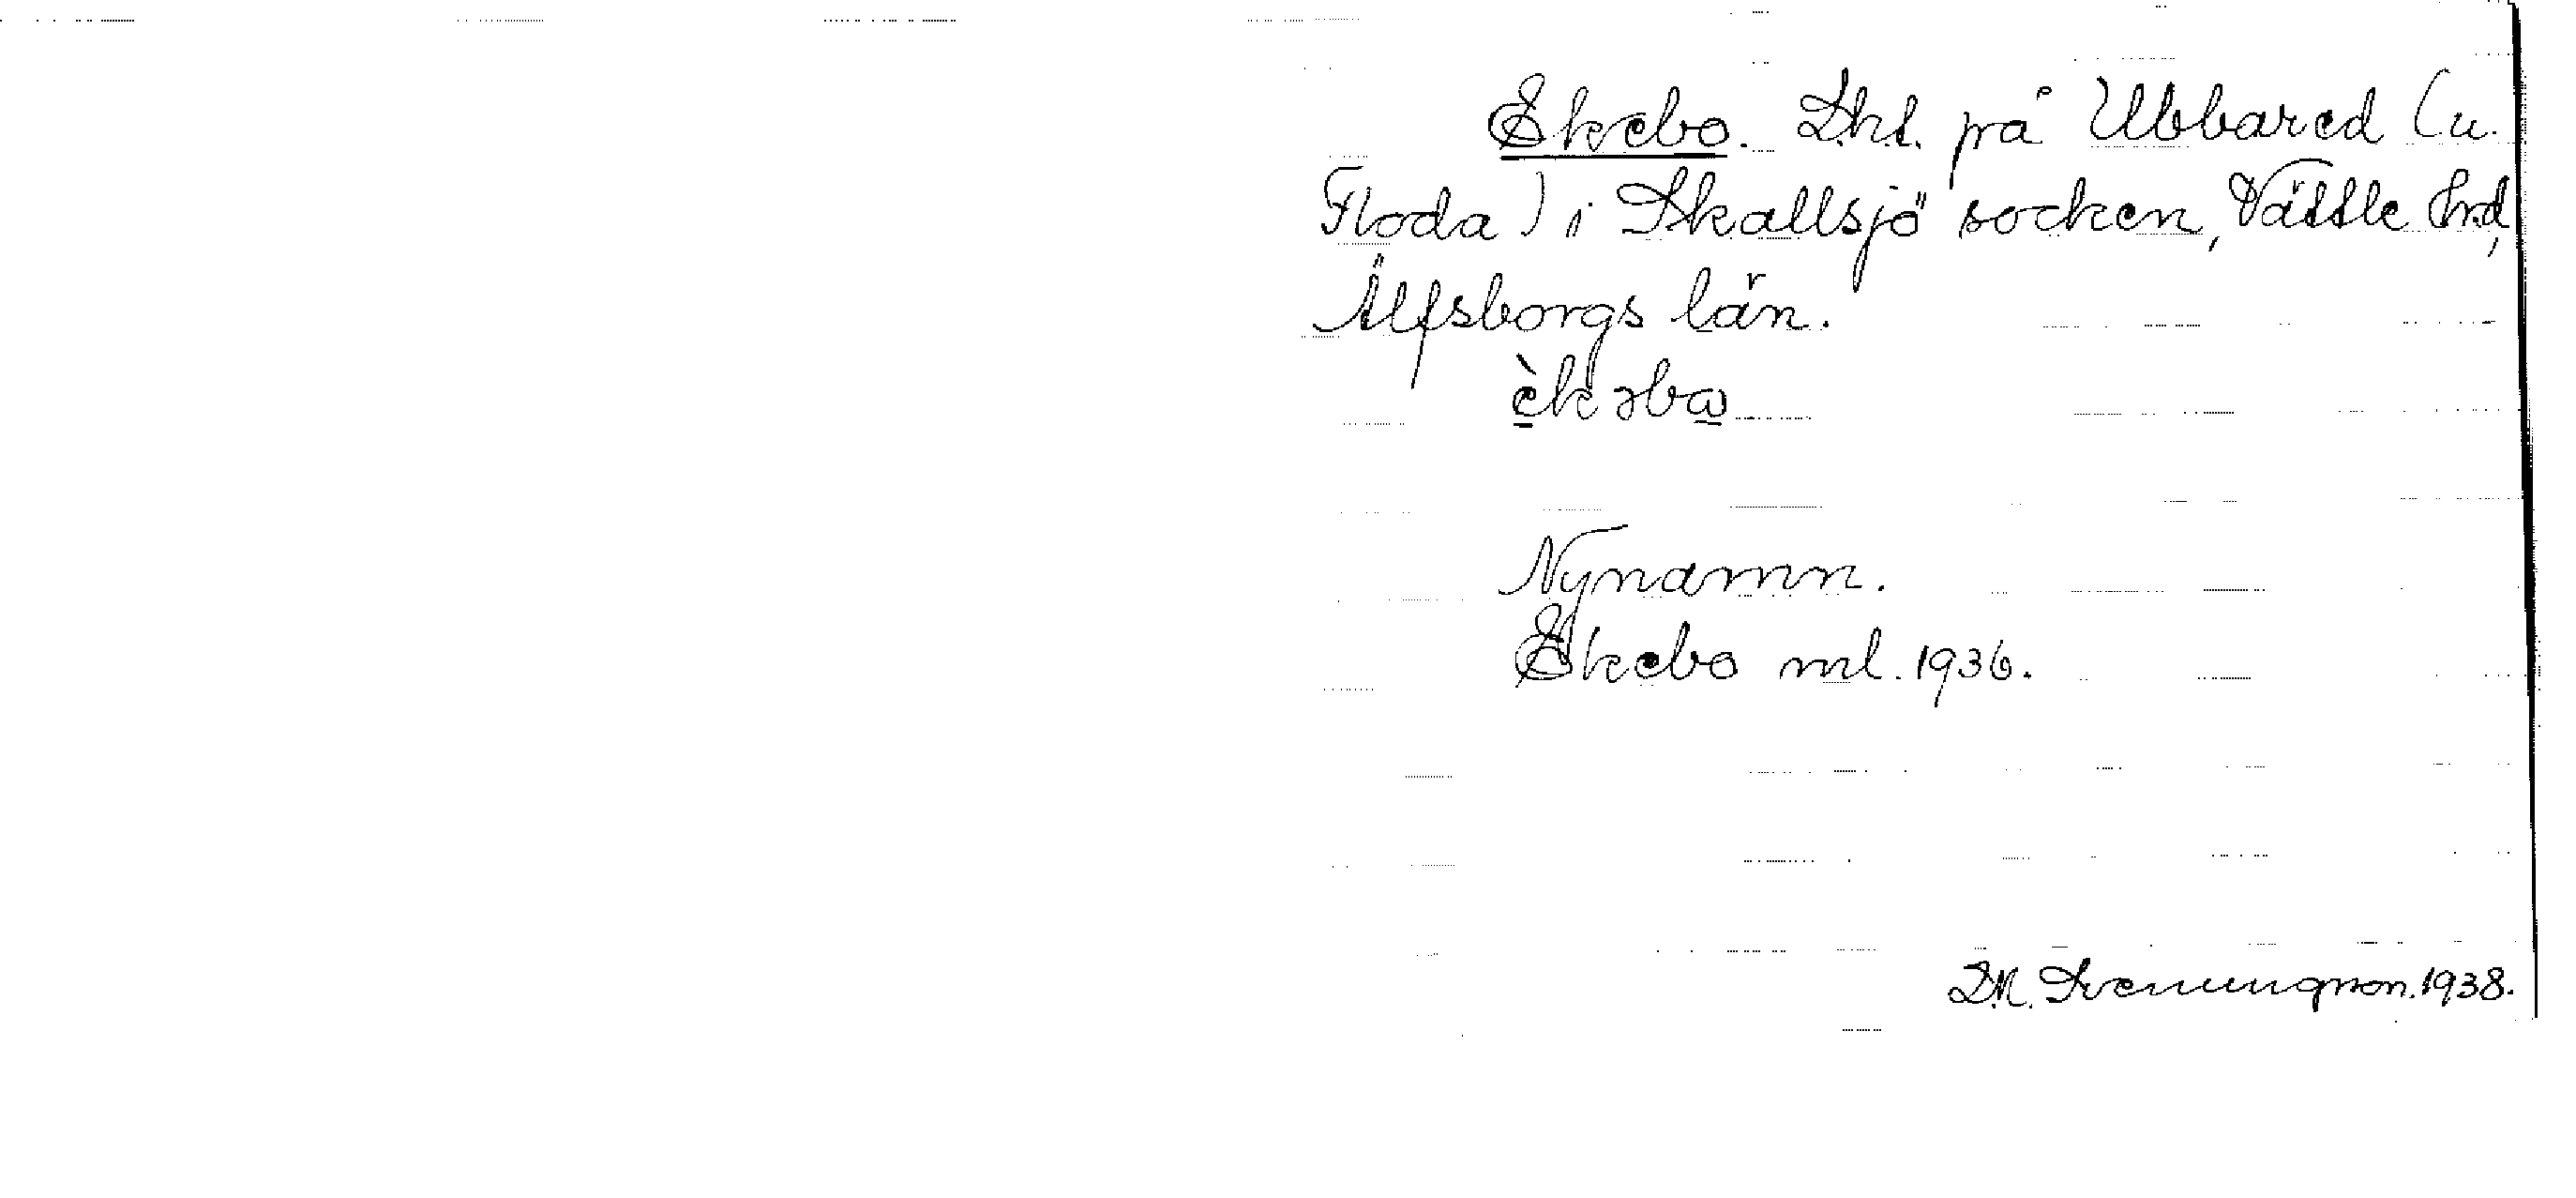 Ekebo. Lht. på Ubbared (u.
Floda) i Skallsjö socken, Vättle hrd,
Älfsborgs län.
èkəbɷ
Nynamn.
Ekebo ml. 1936.
S.M. Svenungson. 1938.